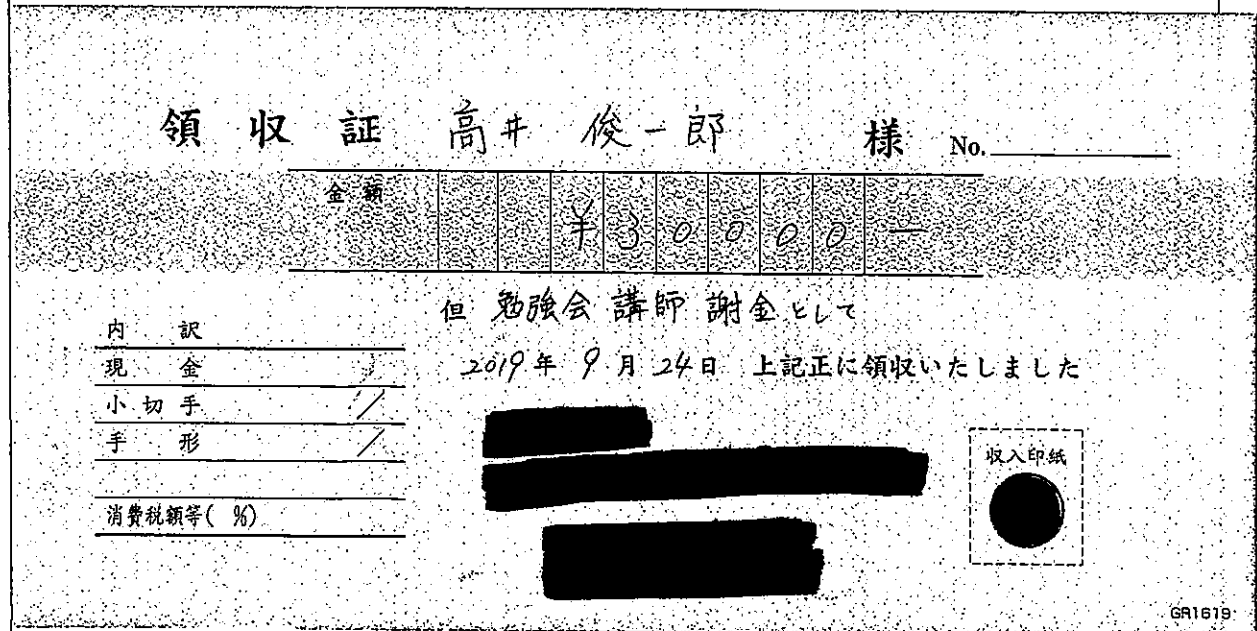 領収証 高井 俊一郎 様 No.
金額 ¥30000―
但 勉強会 講師 謝金として
2019年 9月 24日 上記正に領収いたしました
内訳
現金
小切手
手形
消費税額等( %)
収入印紙
GR1619